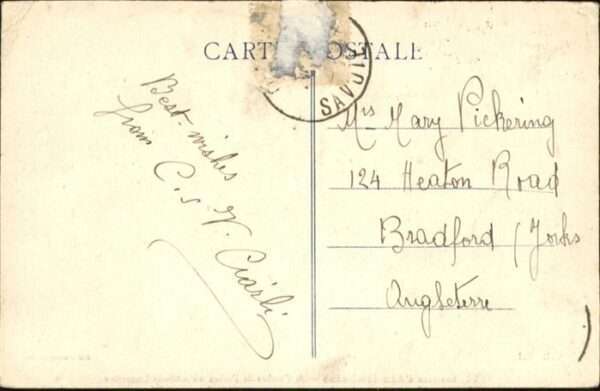 CARTE POSTALE
SAVOIE
Best wishes
from C. S. V. Ciarli
Mrs Mary Pickering
124 Heaton Road
Bradford (Yorks
Angleterre )